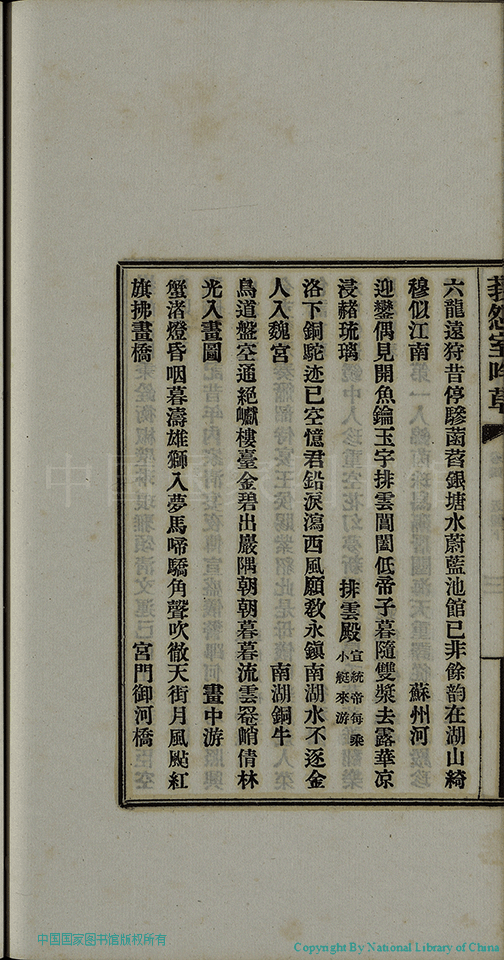 六龍遠狩昔停驂菡萏銀塘水蔚藍池館已非餘韵在湖山綺
穆似江南　蘇州河
迎鑾偶見開魚鑰玉宇排雲閶闔低帝子暮隨雙槳去露華凉
浸赭琉璃　排雲殿　宣統帝每乘小艇來游
洛下銅駝迹已空憶君鉛淚瀉西風願敎永鎭南湖水不逐金
人入魏宮　南湖銅牛
鳥道盤空通絕巘樓臺金碧出巖隅朝朝暮暮流雲罨峭倩林
光入畫圖　畫中游
蟹渚燈昏咽暮濤雄獅入夢馬啼驕角聲吹徹天街月風颭紅
旗拂畫橋　宮門御河橋
中国国家图书馆版权所有
Copyright By National Library of China